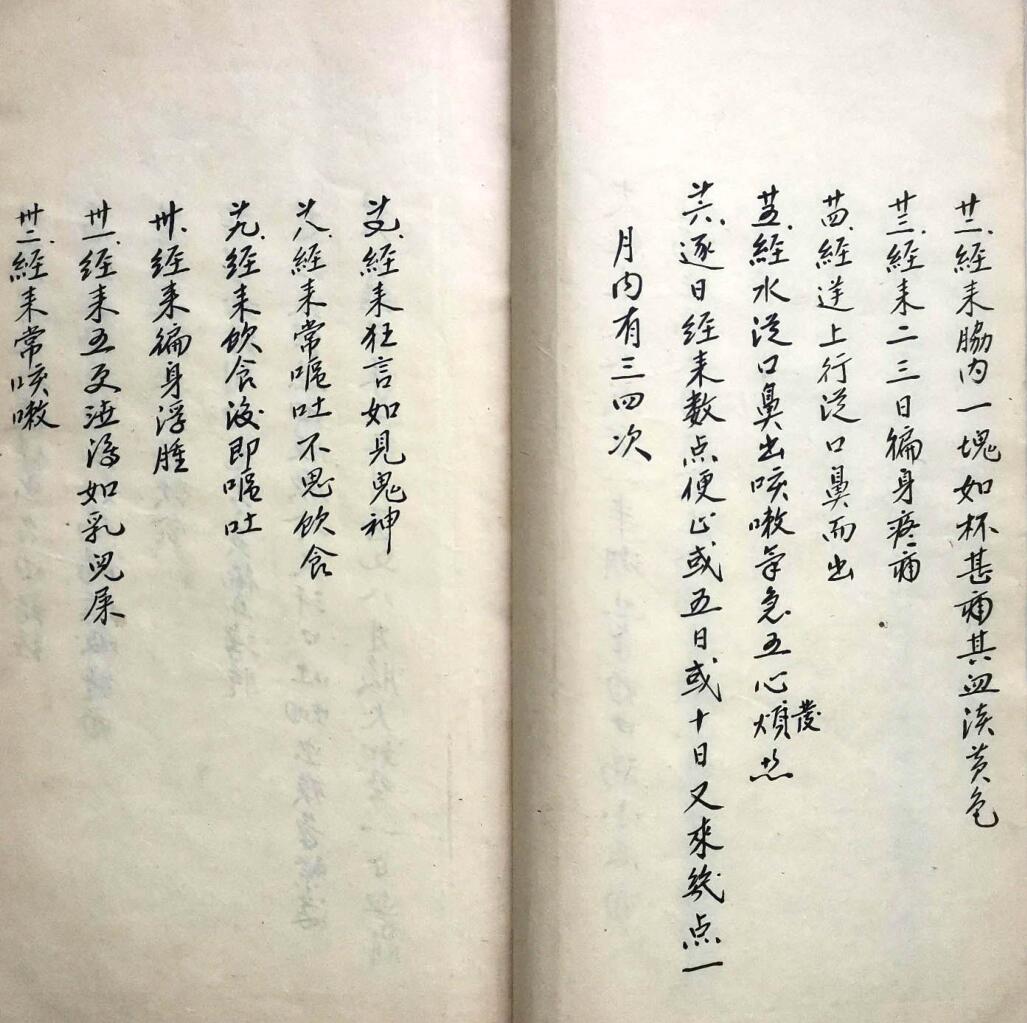 廿二、經来脇内一塊如杯甚痛其血淡黄色
廿三、經来二三日徧身疼痛
廿四、經逆上行從口鼻而出
廿五、經水從口鼻出咳嗽氣急五心煩發热
廿六、逐日經来数点便止或五日或十日又來幾点一
月内有三四次
廿七、經来狂言如見鬼神
廿八、經来常嘔吐不思飲食
廿九、經来飲食後即嘔吐
卅、經来徧身浮腫
卅一、經来五更泄瀉如乳兒屎
卅二、經来常咳嗽